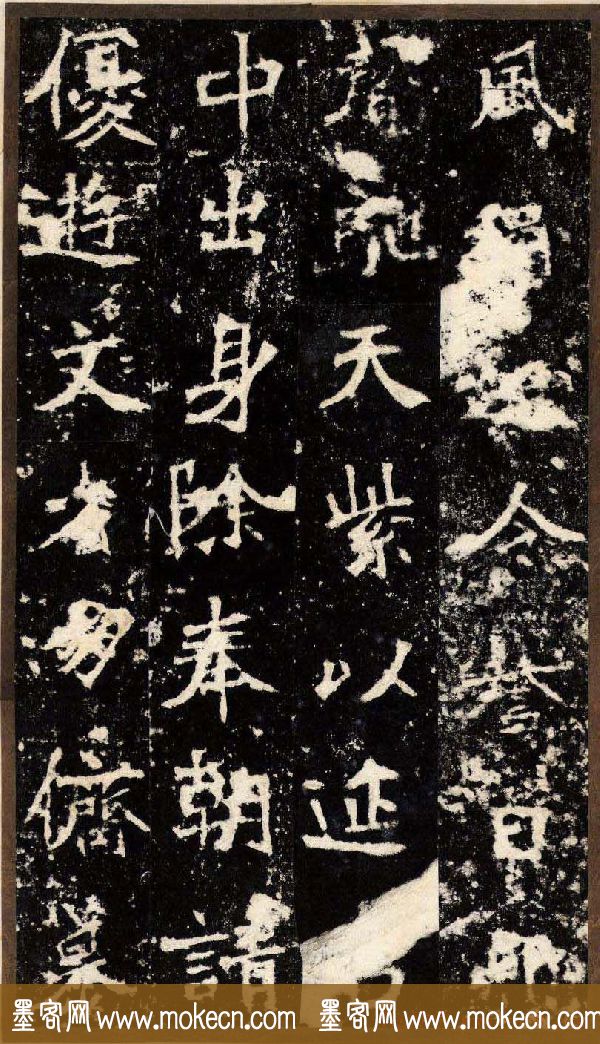 風令譽日新
聲馳天紫以延
中出身除奉朝請
優遊文省朋儕慕
墨客网 www.mokecn.com 墨客网 www.mokecn.com